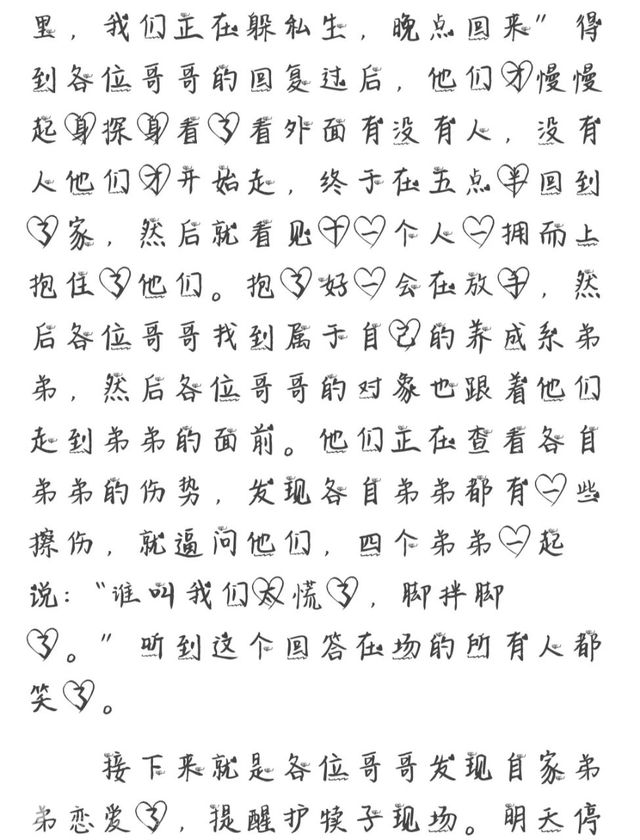 里，我们正在躲私生，晚点回来”得
到各位哥哥的回复过后，他们才慢慢
起身探身看了看外面有没有人，没有
人他们才开始走，终于在五点半回到
了家，然后就看见十一个人一拥而上
抱住了他们。抱了好一会在放手，然
后各位哥哥找到属于自己的养成系弟
弟，然后各位哥哥的对象也跟着他们
走到弟弟的面前。他们正在查看各自
弟弟的伤势，发现各自弟弟都有一些
擦伤，就逼问他们，四个弟弟一起
说：“谁叫我们太慌了，脚拌脚
了。”听到这个回答在场的所有人都
笑了。
接下来就是各位哥哥发现自家弟
弟恋爱了，提醒护犊子现场。明天停